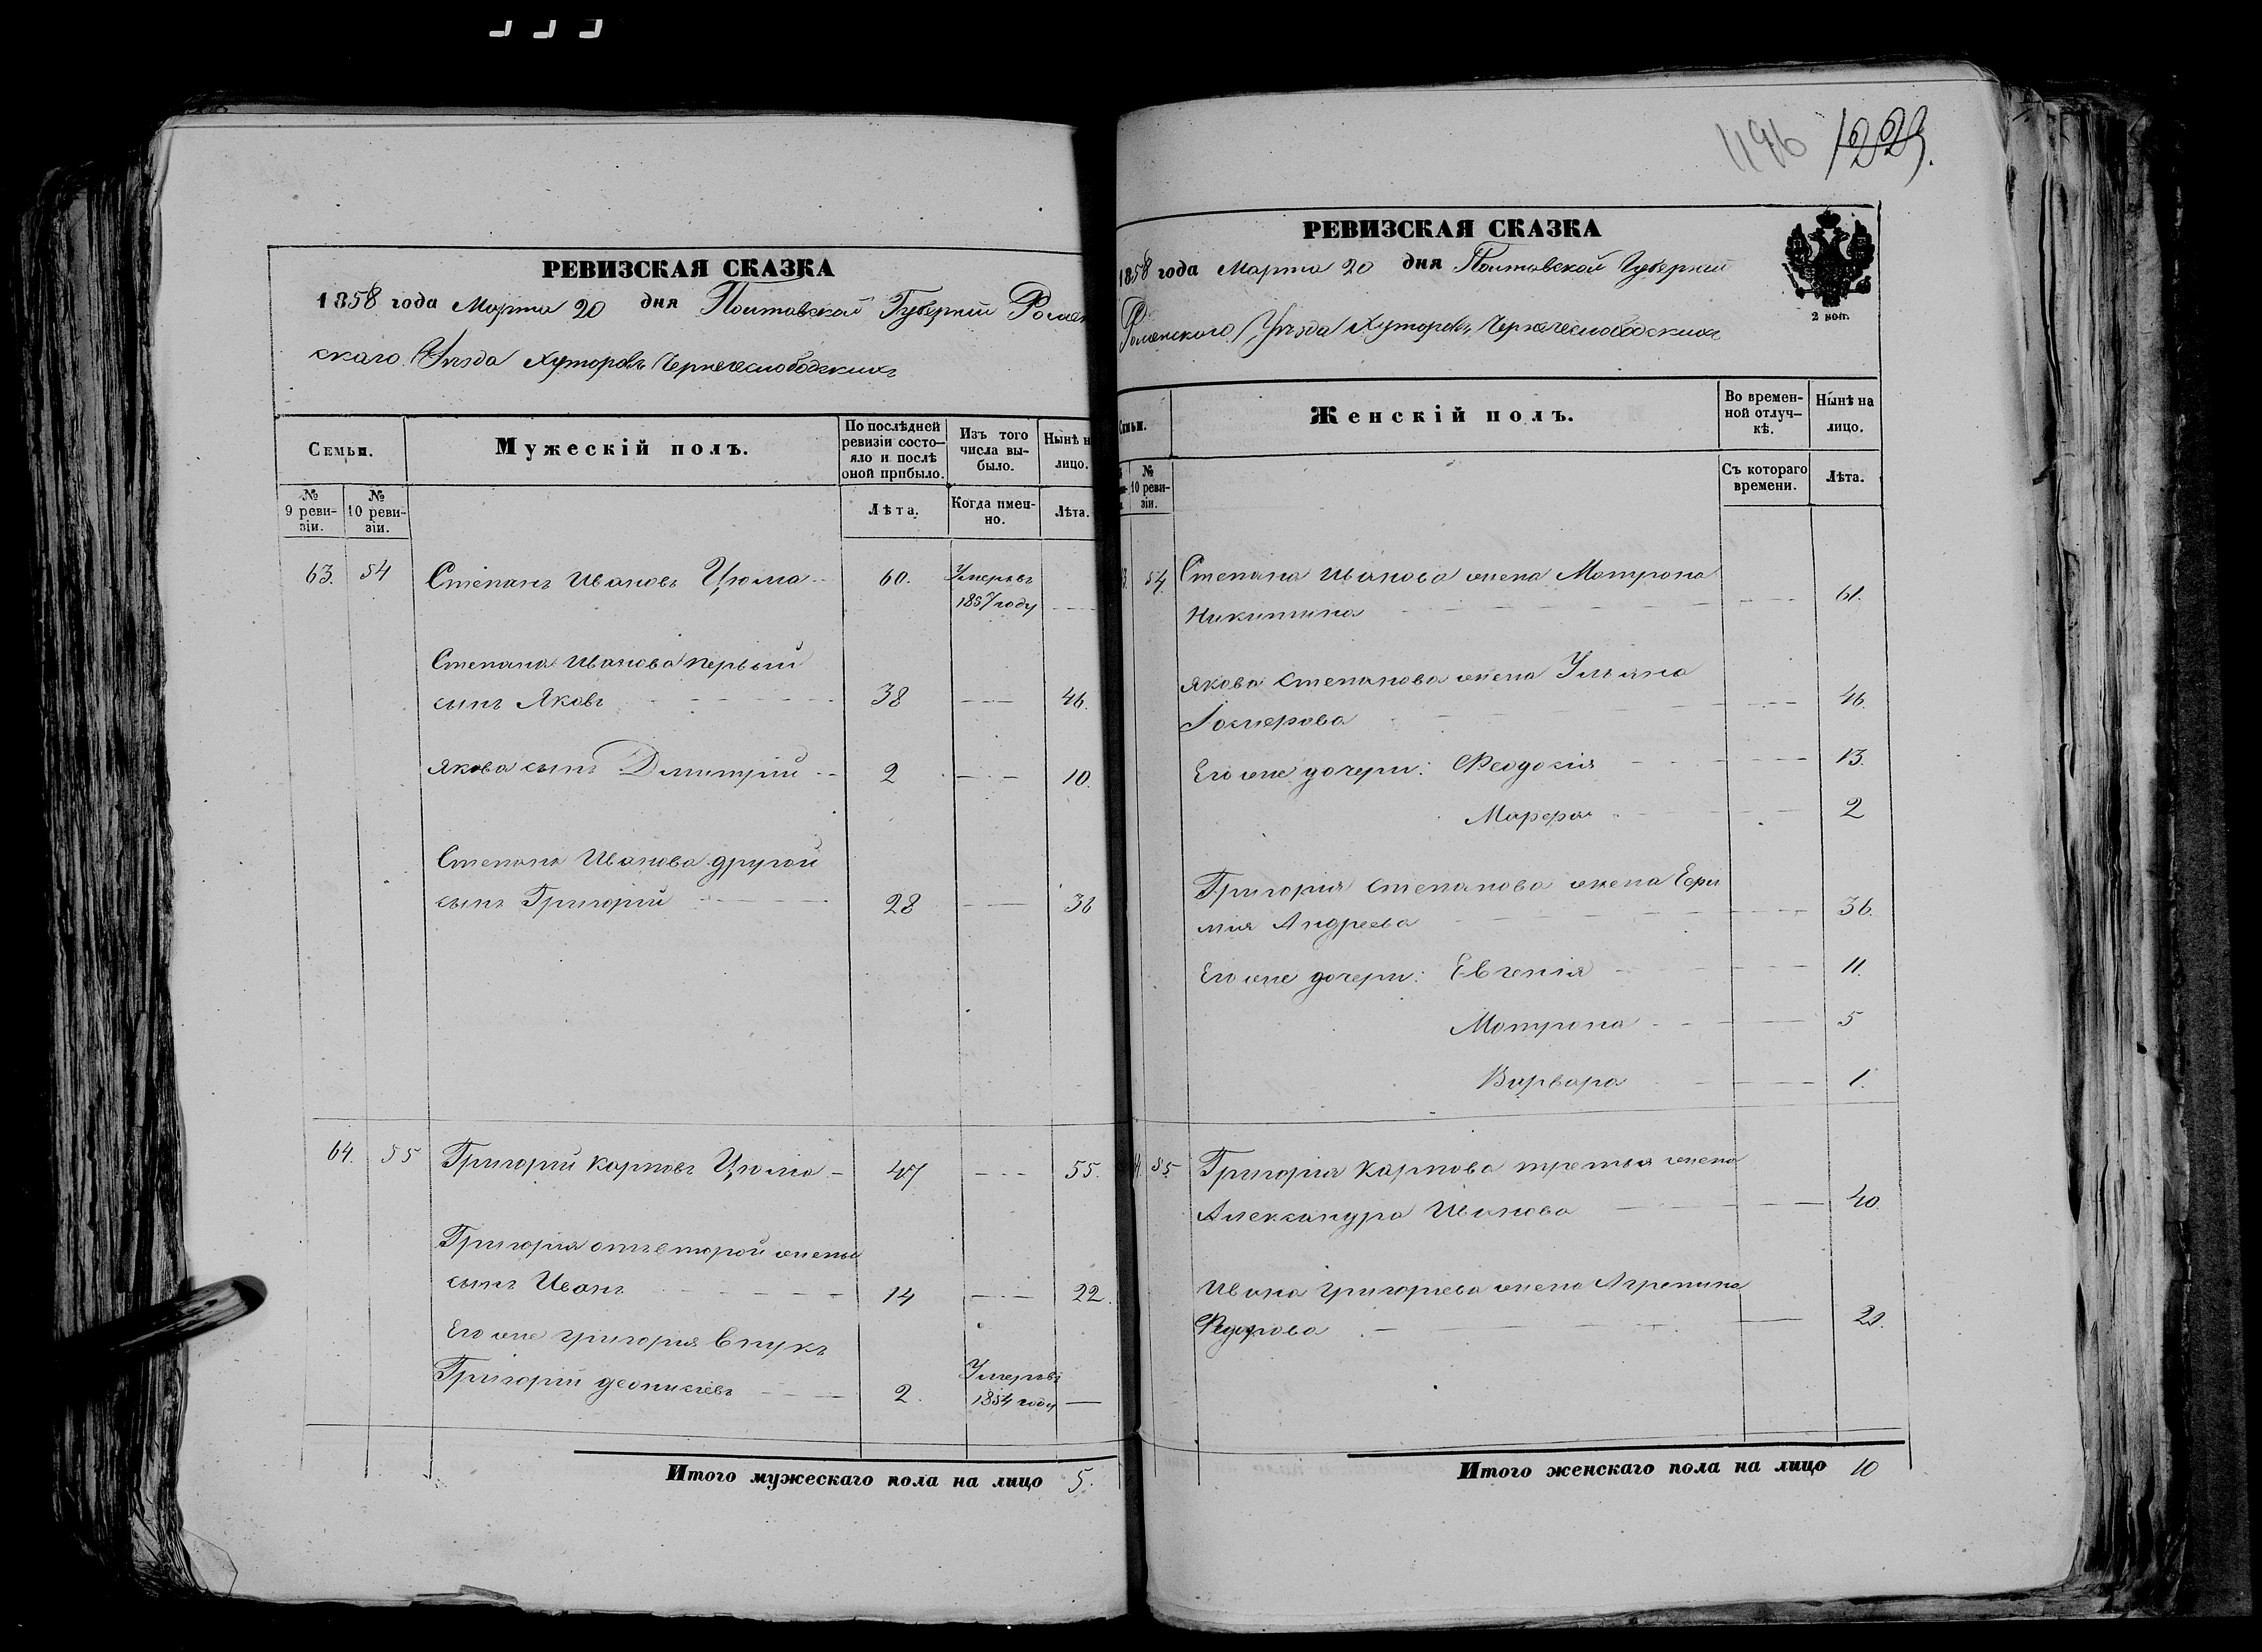 РЕВИЗСКАЯ СКАЗКА
1858 года Марта 20 дня Полтавской Губерніи Ромен
скаго Уѣзда Хуторовъ Чернечеслободскихъ
Семьи.
Мужескій полъ.
По послѣдней ревизіи состояло и послѣ оной прибыло.
Изъ того числа выбыло.
Нынѣ н лицо.
№ 9 ревизіи.
№ 10 ревизіи.
Лѣта.
Когда именно.
Лѣта.
63. 54 Степанъ Ивановъ Цюма 60. Умеръ въ
1857 году
Степана Иванова первый
сынъ Яковъ 38 46.
Якова сынъ Дмитрій 2 10.
Степана Иванова другой
сынъ Григорій 28 36
64. 55 Григорій Карповъ Цюма 47 55.
Григорія отъ второй жены
сынъ Иванъ 14 22.
Его же Григорія внукъ
Григорій 2. Умеръ въ
1854 году
Итого мужескаго пола на лицо 5.
1196 1229.
РЕВИЗСКАЯ СКАЗКА
1858 года Марта 20 дня Полтавской Губерніи
2 коп.
Роменского Уѣзда Хуторовъ Чернечеслободскихъ
Женскій полъ.
Во временной отлучкѣ.
Нынѣ на лицо.
№ 10 ревизіи.
Съ котораго времени.
Лѣта.
54. Степана Иванова жена Мотрона
Никитина 61.
Якова Степанова жена Ульяна
46.
Его же дочери: Феодосія 13.
Марфа 2
Григорія Степанова жена Ефи
мія Андреева 36.
Его же дочери: Евгенія 11.
Мотрона 5
Варвара 1.
55. Григорія Карпова третья жена
Александра Иванова 40.
Ивана Григорьева жена Агрепина
Федорова 21.
Итого женскаго пола на лицо 10